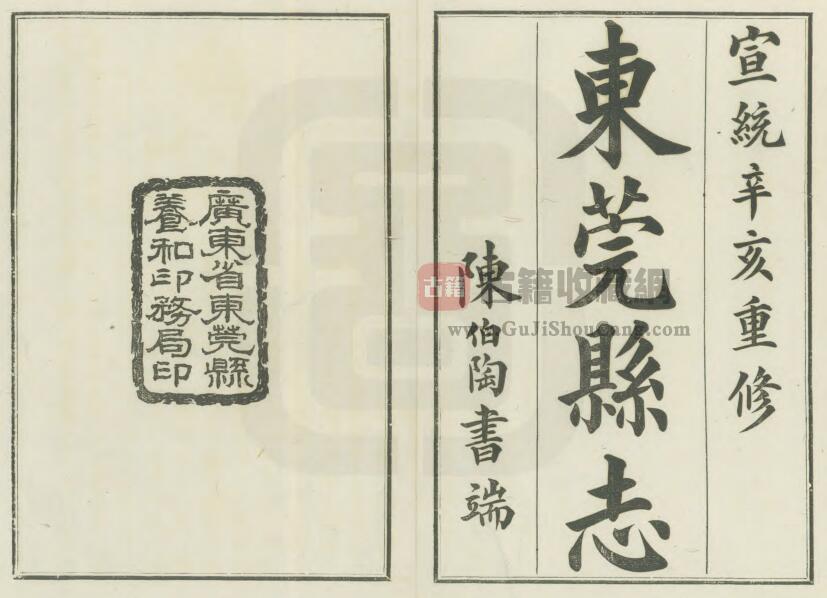 宣統辛亥重修
東莞縣志
陳伯陶書端
廣東省東莞縣
養和印務局印
古籍
古籍收藏網
www.GuJiShouCang.com